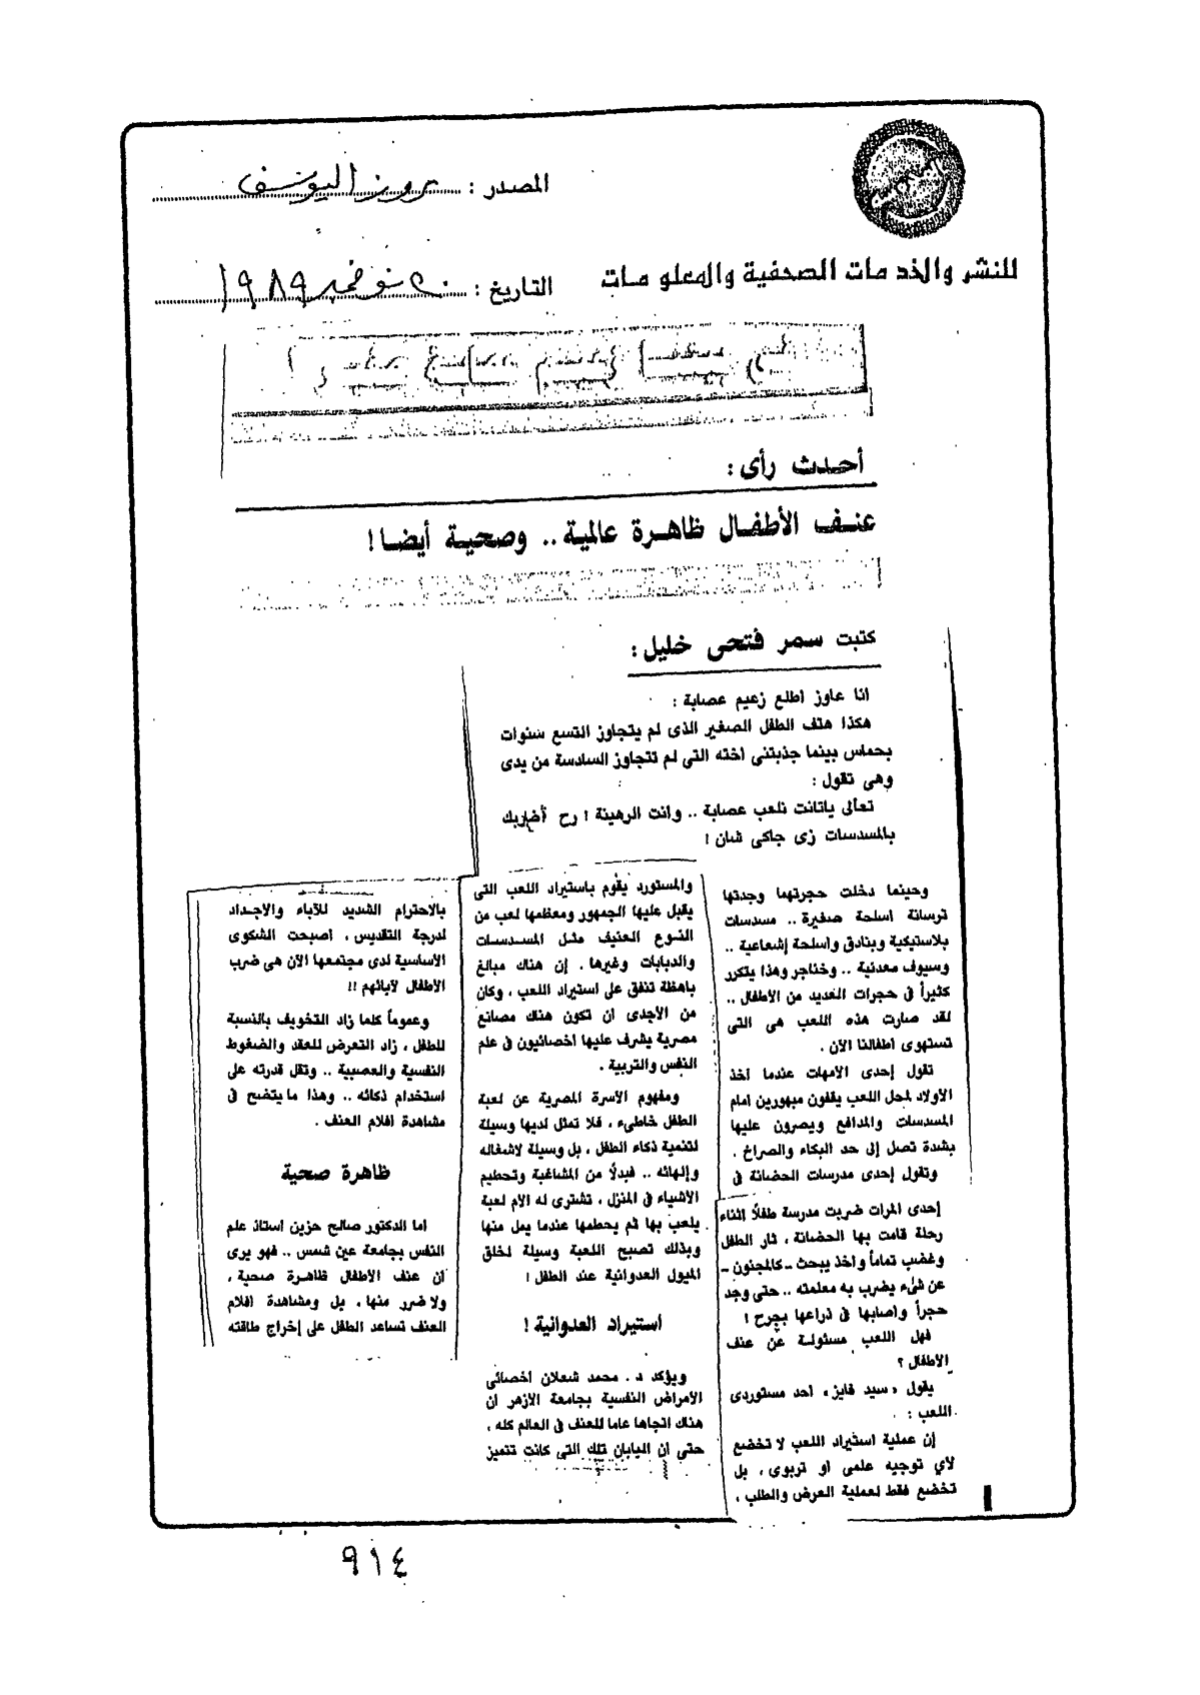 المصدر : روز اليوسف
للنشر والخدمات الصحفية والمعلومات
التاريخ : ٢٠ نوفمبر ١٩٨٩
أحدث رأى :
عنف الأطفال ظاهرة عالمية .. وصحية أيضا !
كتبت سمر فتحى خليل :
انا عاوز اطلع زعيم عصابة :
هكذا هتف الطفل الصغير الذى لم يتجاوز التسع سنوات
بحماس بينما جذبتنى اخته التى لم تتجاوز السادسة من يدى
وهى تقول :
تعالى ياتانت نلعب عصابة .. وانت الرهينة ! رح أضاربك
بالمسدسات زى جاكى شان !
وحينما دخلت حجرتهما وجدتها
ترسانة اسلحة صغيرة .. مسدسات
بلاستيكية وبنادق واسلحة إشعاعية ..
وسيوف معدنية .. وخناجر وهذا يتكرر
كثيراً فى حجرات العديد من الأطفال ..
لقد صارت هذه اللعب هى التى
تستهوى اطفالنا الآن .
تقول إحدى الأمهات عندما اخذ
الاولاد لمحل اللعب يقفون مبهورين امام
المسدسات والمدافع ويصرون عليها
بشدة تصل إلى حد البكاء والصراخ .
وتقول إحدى مدرسات الحضانة فى
إحدى المرات ضربت مدرسة طفلاً اثناء
رحلة قامت بها الحضانة ، ثار الطفل
وغضب تماماً واخذ يبحث ـ كالمجنون ـ
عن شىء يضرب به معلمته .. حتى وجد
حجراً واصابها فى ذراعها بجرح !
فهل اللعب مسئولة عن عنف
الاطفال ؟
يقول « سيد فايز » احد مستوردى
اللعب :
إن عملية استيراد اللعب لا تخضع
لاي توجيه علمى او تربوى ، بل
تخضع فقط لعملية العرض والطلب ،
والمستورد يقوم باستيراد اللعب التى
يقبل عليها الجمهور ومعظمها لعب من
النوع العنيف مثل المسدسات
والدبابات وغيرها . إن هناك مبالغ
باهظة تنفق على استيراد اللعب ، وكان
من الأجدى ان تكون هناك مصانع
مصرية يشرف عليها اخصائيون فى علم
النفس والتربية .
ومفهوم الأسرة المصرية عن لعبة
الطفل خاطىء ، فلا تمثل لديها وسيلة
لتنمية ذكاء الطفل ، بل وسيلة لاشغاله
وإلهائه .. فبدلًا من المشاغبة وتحطيم
الاشياء فى المنزل ، تشترى له الام لعبة
يلعب بها ثم يحطمها عندما يمل منها
وبذلك تصبح اللعبة وسيلة لخلق
الميول العدوانية عند الطفل !
استيراد العدوانية !
ويؤكد د . محمد شعلان اخصائى
الامراض النفسية بجامعة الأزهر ان
هناك اتجاها عاما للعنف فى العالم كله ،
حتى ان اليابان تلك التى كانت تتميز
بالاحترام الشديد للآباء والاجداد
لدرجة التقديس ، اصبحت الشكوى
الاساسية لدى مجتمعها الآن هى ضرب
الأطفال لآبائهم !!
وعموماً كلما زاد التخويف بالنسبة
للطفل ، زاد التعرض للعقد والضغوط
النفسية والعصبية .. وتقل قدرته على
استخدام ذكائه .. وهذا ما يتضح فى
مشاهدة افلام العنف .
ظاهرة صحية
اما الدكتور صالح حزين استاذ علم
النفس بجامعة عين شمس .. فهو يرى
ان عنف الأطفال ظاهرة صحية ،
ولا ضرر منها ، بل ومشاهدة افلام
العنف تساعد الطفل على إخراج طاقته
٩١٤